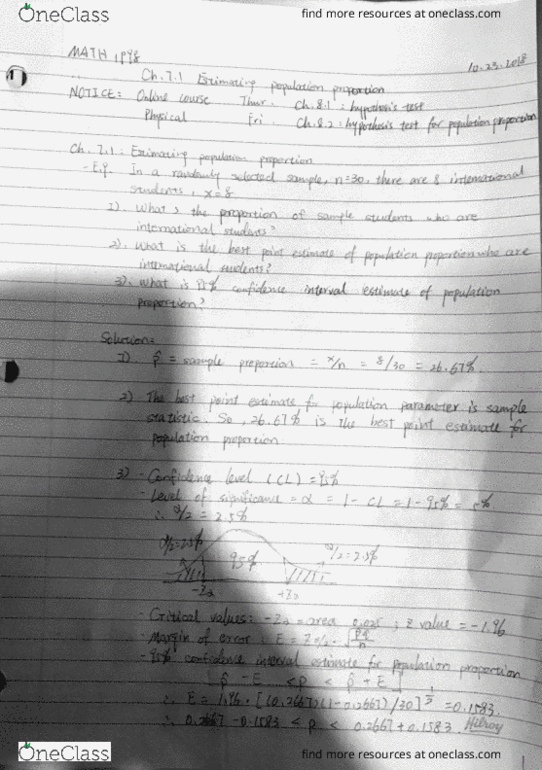 OneClass
find more resources at oneclass.com
MATH 1P98
10.23.2018
Ch.7.1 Estimating population proportion
NOTICE: Online course Thur. Ch.8.1: hypothesis test
Physical Fri. Ch.8.2: hypothesis test for population proportion
Ch.7.1: Estimating population proportion
- E.g. In a randomly selected sample, n=30, there are 8 international
students, x=8
1). What's the proportion of sample students who are
international students?
2). What is the best point estimate of population proportion who are
international students?
3). What is 95% confidence interval estimate of population
proportion?
Solution:
1). p̂ = sample proportion = x/n = 8/30 = 26.67%.
2) The best point estimate for population parameter is sample
statistic. So, 26.67% is the best point estimate for
population proportion
3) - Confidence level (CL) = 95%
- Level of significance = α = 1 - CL = 1 - 95% = 5%
∴ α/2 = 2.5%
α/2=2.5% 95% α/2=2.5%
- Critical values: = area 0.025 ; Z value = -1.96
- Margin of error: E = Zα/2 · √p̂q̂/n
- 95% confidence interval estimate for population proportion
[p̂ - E < p < p̂ + E]
∴ E = 1.96 · [(0.2667)(1-0.2667)/30]^½ = 0.1583
∴ 0.2667 - 0.1583 < p < 0.2667 + 0.1583
Hilroy
OneClass
find more resources at oneclass.com